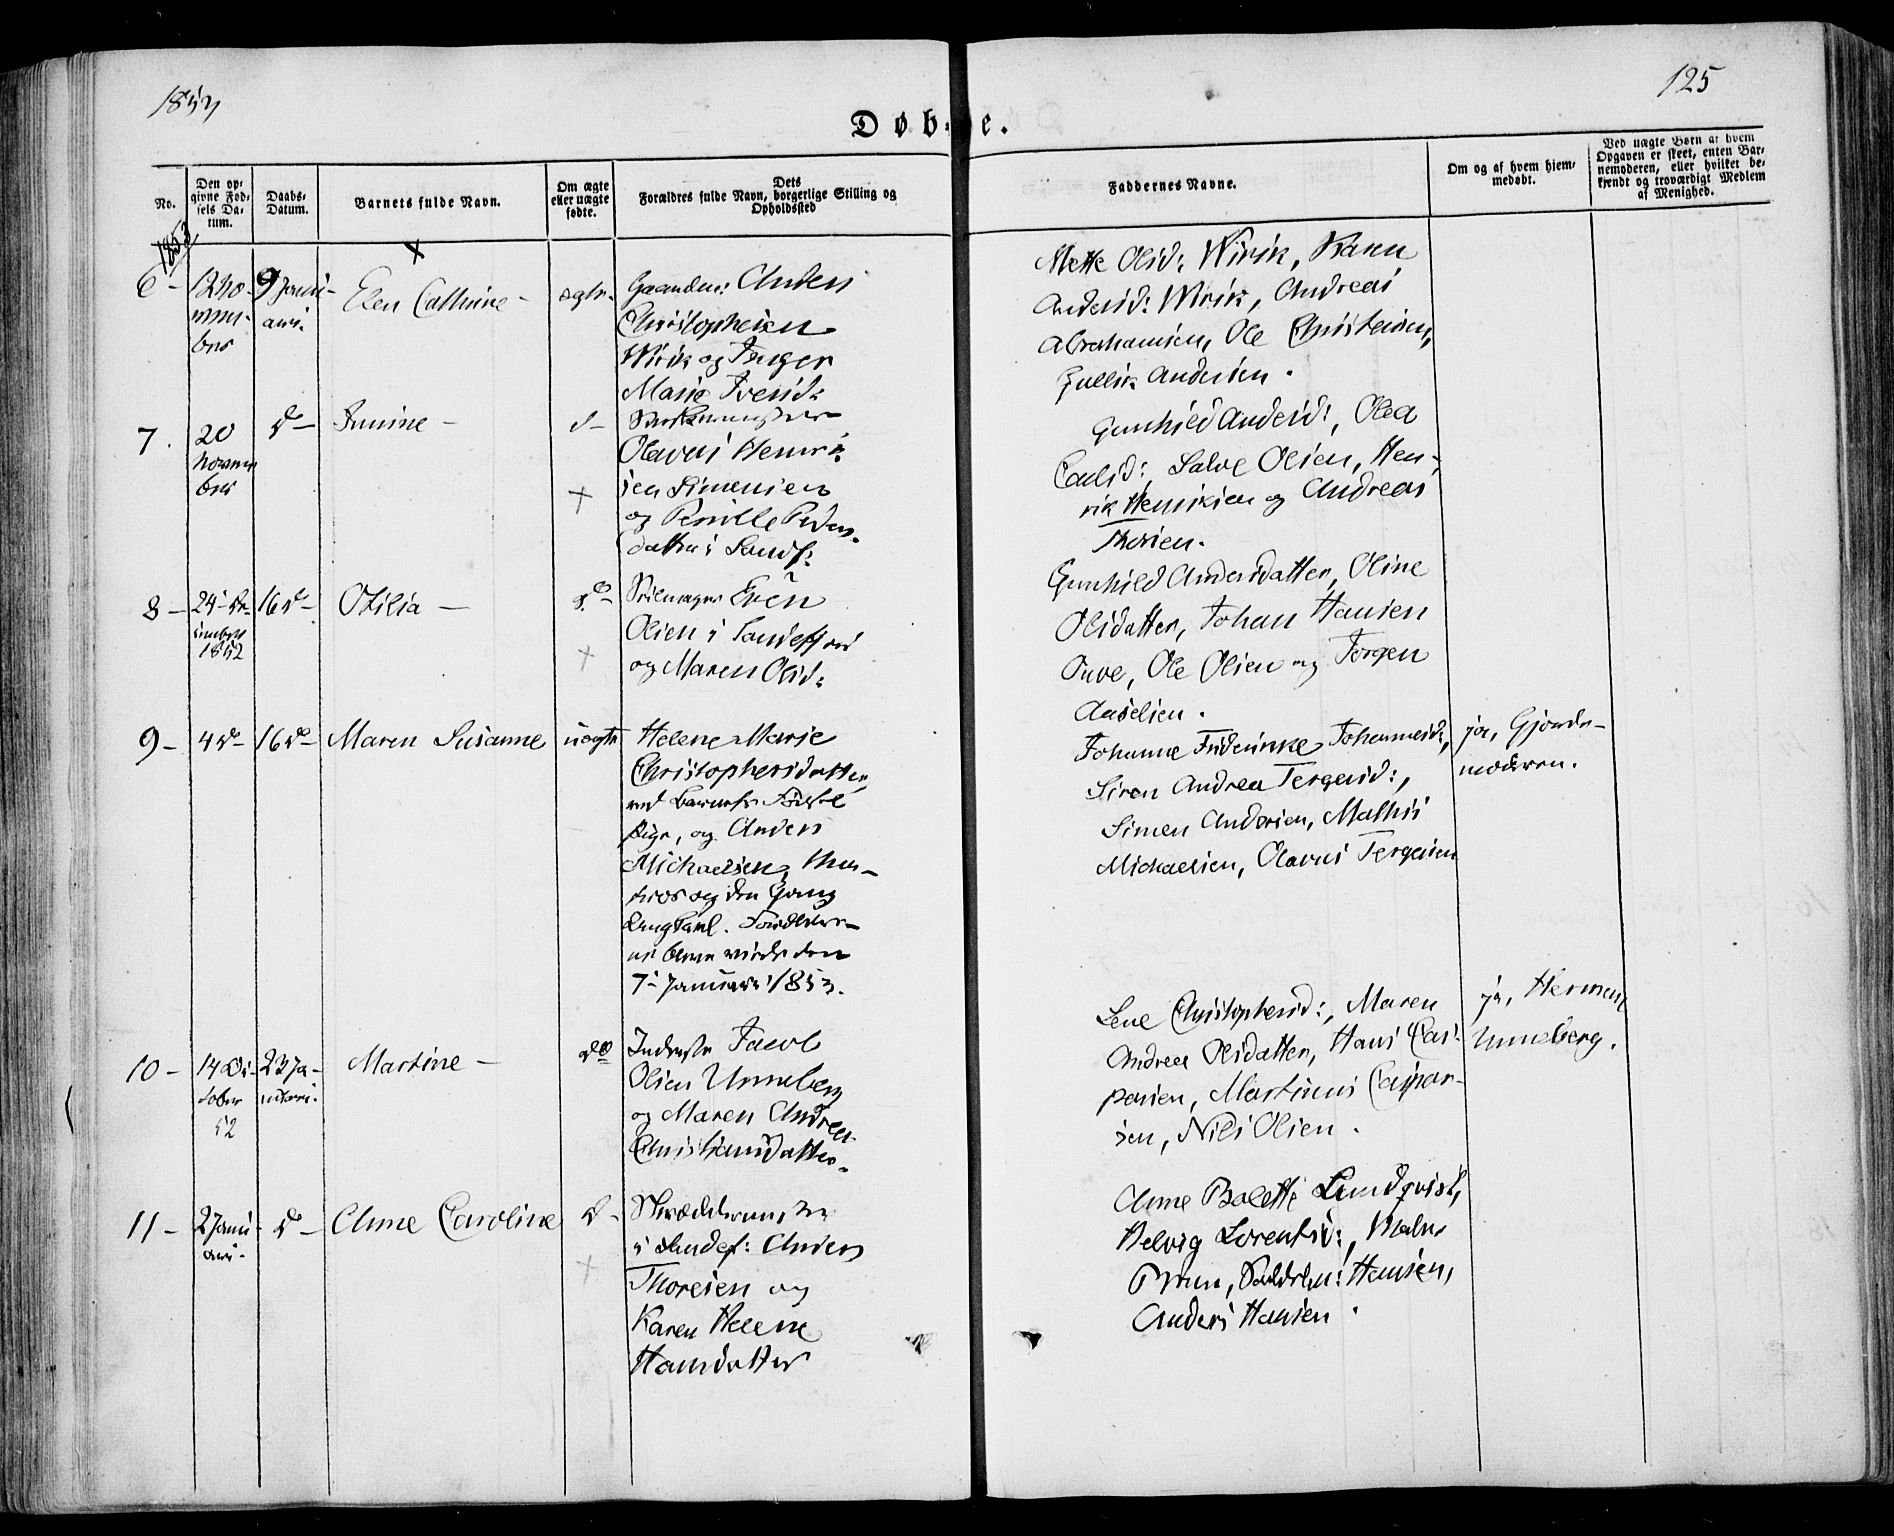 1853
125
Døbte.
No.
Den op-
givne Fød-
sels Da-
tum.
Daabs-
Datum.
Barnets fulde Navn.
Om ægte
eller uægte
fødte.
Dets
Forældres fulde Navn, borgerlige Stilling og
Opholdssted
Faddernes Navne.
Om og af hvem hjem-
medøbt.
Ved uægte Børn at hvem
Opgaven er skeet, enten Bar-
nemoderen, eller hvilket be-
kjendt og troværdigt Medlem
af Menighed.
1853
6 - 12 No-
vem-
ber
9 Janu-
ari.
Elen Cathrine -
ægte.
Gaardm: Anders
Christophersen
Wirik og Inger
Marie Iversd:
Mette Olsd: Wirik, Karen
Andersd: Wirik, Andreas
Abrahamsen, Ole Christensen,
Gullik Andersen.
7.
20
Novem
ber
d -
Immine -
d -
Olavus Henrik-
sen Simensen
og Pernille Peders-
datter i Sandf:
Gunhild Andersd:, Olea
Carlsd: Salve Olsen, Hen-
rik Henriksen og Andreas
Thorsen.
8 -
24 De-
cember
1852
16 d -
Otilia -
do -
Seilmager Even
Olsen i Sandefjord
og Maren Olsd:
Gunhild Andersdatter, Oline
Olsdatter, Johan Hansen
Ole Olsen og Jørgen
Axelsen.
9 -
4 do -
16 do -
Maren Susanne
uægte
Helene Marie
Christophersdatter,
ved Barnets Fødsel
Pige, og Anders
Michaelsen, Ma-
tros og den Gang
Ungkarl. Forældre-
ne bleve viede den
7 Januari 1853.
Johanne Frederikke Johannesd:,
Siren Andrea Tergersd:,
Simen Andersen, Mathis
Michaelsen, Olavus Tergersen
ja, Gjorde-
moderen.
10 -
14 Oc-
tober
52
23 Ja-
nuari.
Martine -
do
Inderste Jacob
Olsen Unneberg
og Maren Andrea
Christiansdatter.
Lene Christophersd:, Maren
Andrea Olsdatter, Hans Cas-
persen, Martinus Caspar-
sen, Nils Olsen.
ja, Herman
Unneberg.
11 -
2 Janu-
ari.
d -
Anne Caroline
d -
Skræddermester
i Sandef: Anders
Thoresen og
Karen Helene
Hansdatter
Anne Bolette Lundqvist,
Helvig Lorentsd:, Malne
Bruun, Hansen,
Anders Hansen.